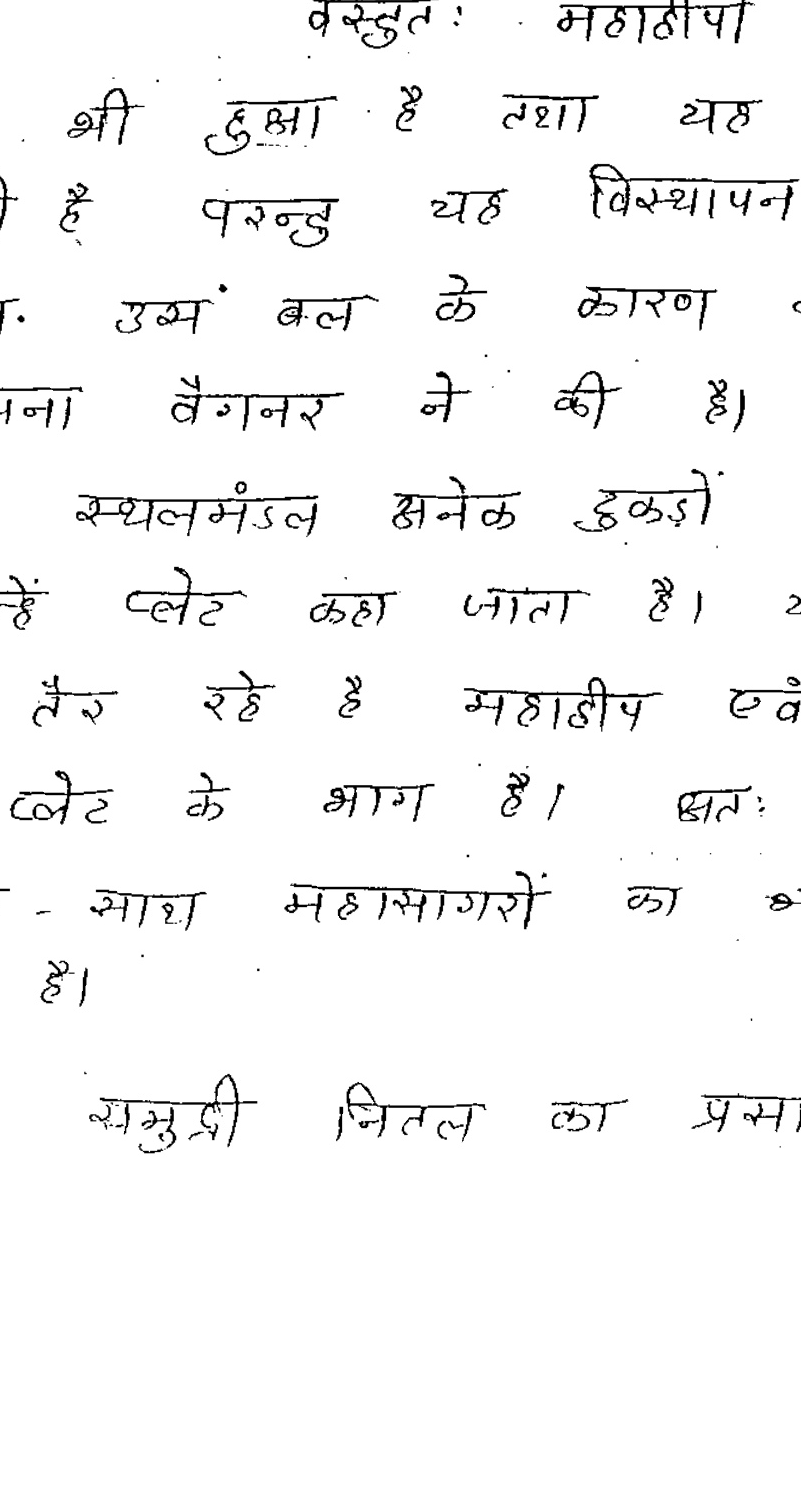 वस्तुत: महाद्वीपों
भी हुआ है तथा यह
है परन्तु यह विस्थापन
उस बल के कारण
वैगनर ने की है।
स्थलमंडल अनेक टुकड़ों
प्लेट कहा जाता है।
तैर रहे है महाद्वीप एवं
प्लेट के भाग है। अत:
- साथ महासागरों का
है।
समुद्री नितल का